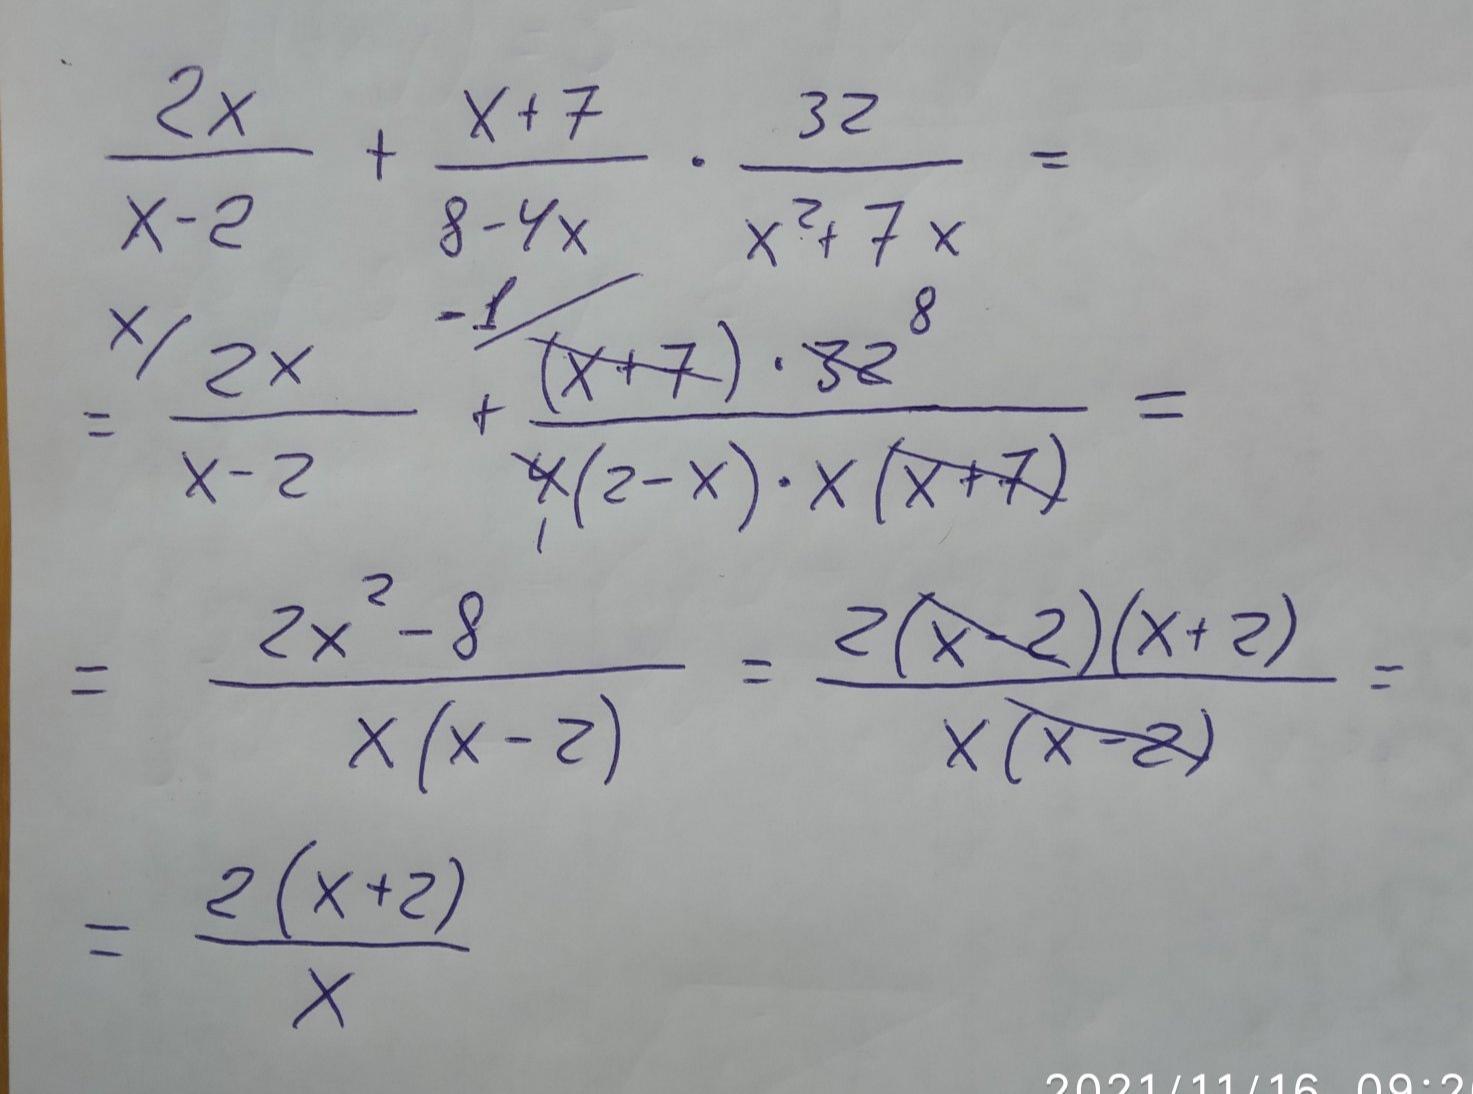 2x/(x-2) + (x+7)/(8-4x) · 32/(x²+7x) =
= x/ 2x/(x-2) + -1/ (x+7)·32 8/(4(2-x)·x(x+7)) 1 =
= (2x²-8)/(x(x-2)) = 2(x-2)(x+2)/(x(x-2)) =
= 2(x+2)/x
2021/11/16 09:2